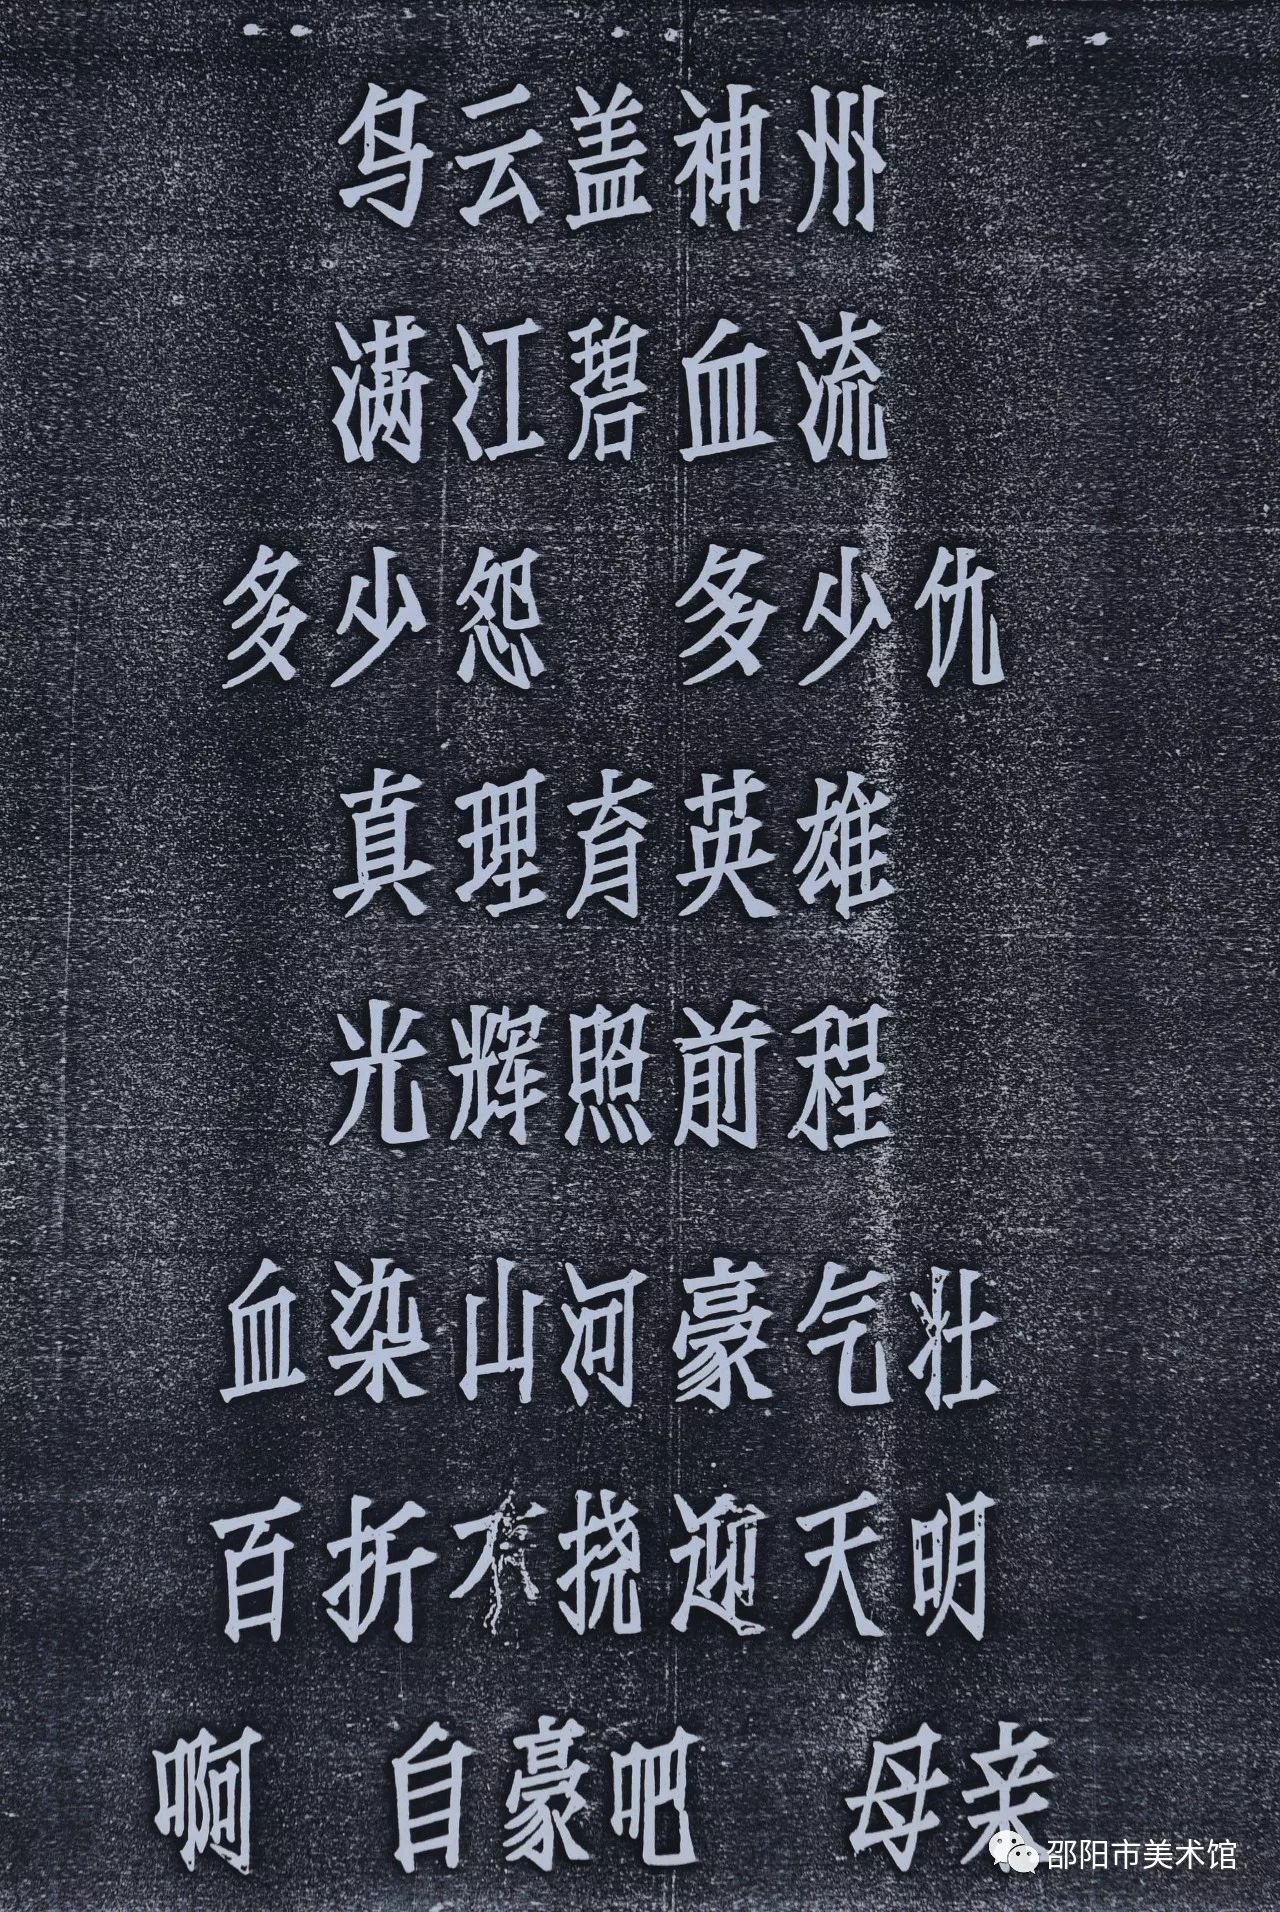 乌云盖神州
满江碧血流
多少怨 多少仇
真理育英雄
光辉照前程
血染山河豪气壮
百折不挠迎天明
啊 自豪吧 母亲
邵阳市美术馆